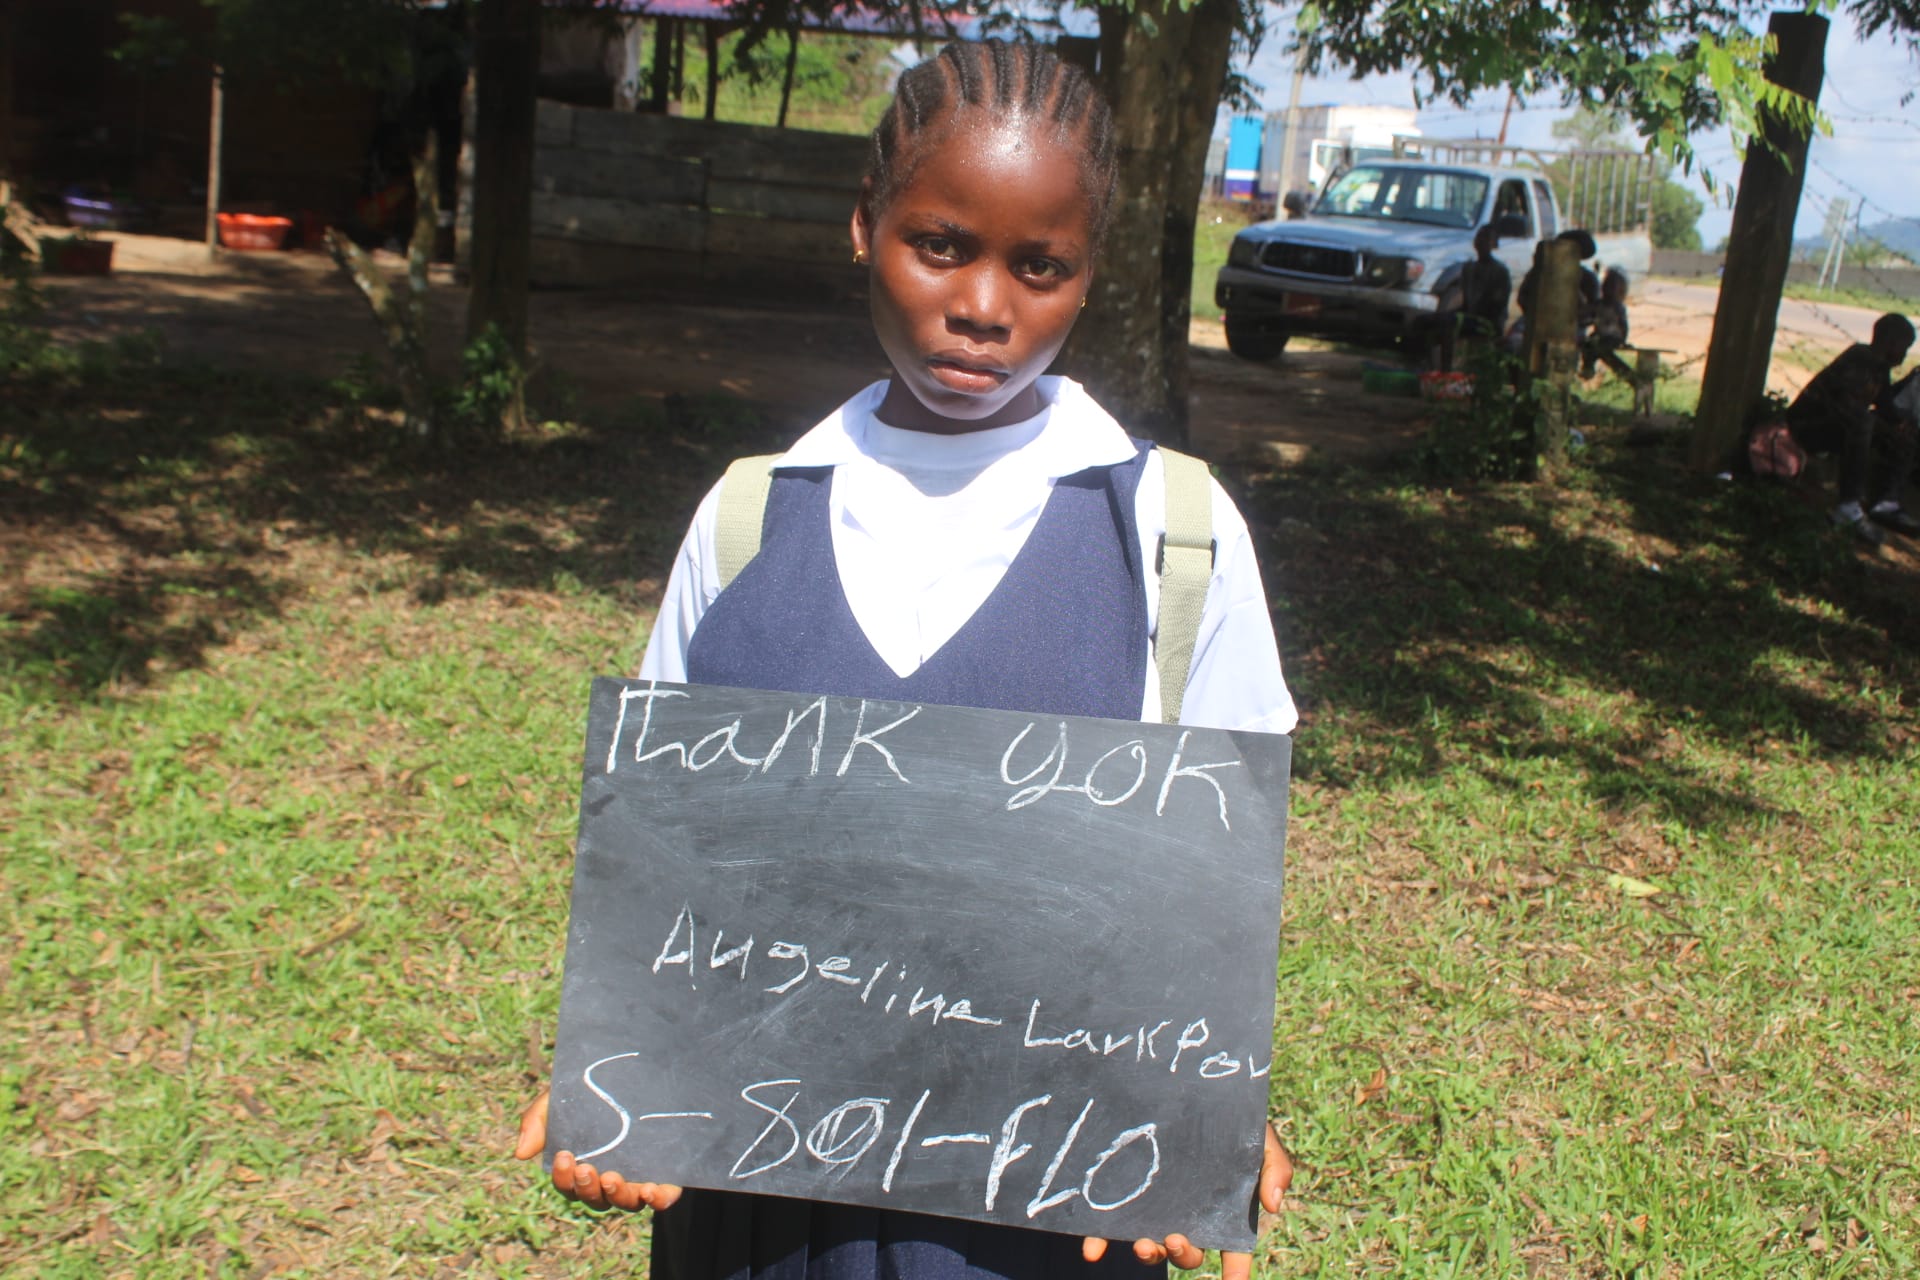 Thank yok
Angeline Larkpor
S-801-FLO